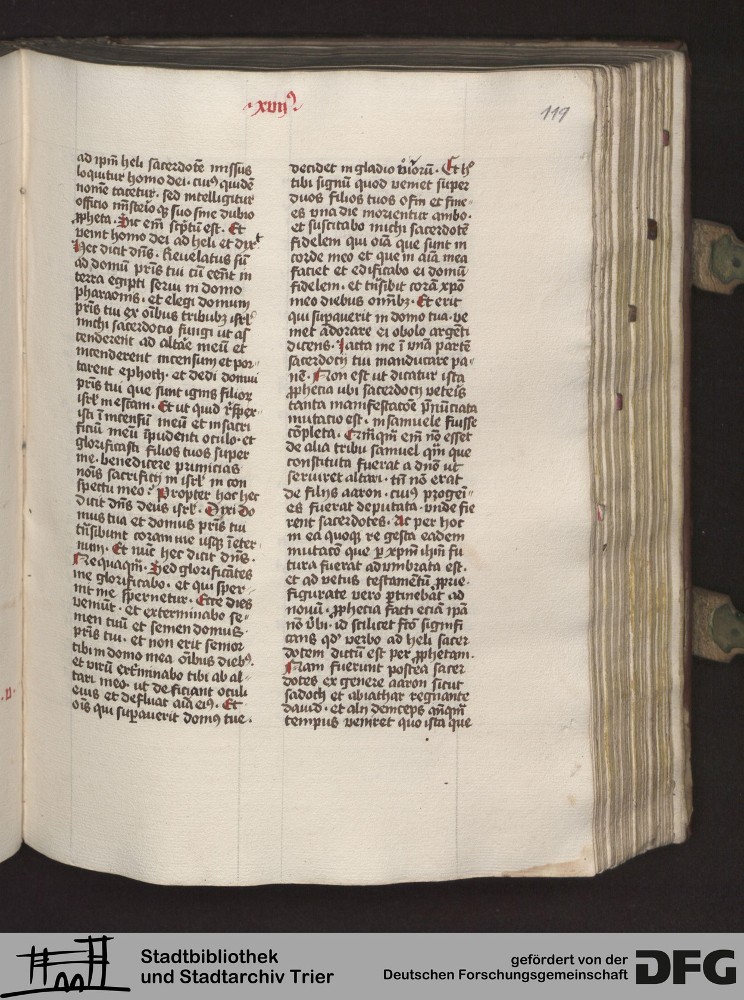 xvij
119
ad ipm̄ heli sacerdotē missus
loquitur homo dei · cui9 quidē
nomē tacetur · sed intelligitur
officio mīsterioq3 suo sine dubio
ꝓpheta · Sic em̄ scptū est · Et
venit homo dei ad heli et dixt
Hec dicit dn̄s · Reuelatus sū
ad domū pr̄is tui cū eēnt in
terra egipti serui in domo
pharaonis · et elegi domum
pr̄is tui ex oībus tribub3 isrl̄
michi sacerdotio fungi ut as
cenderent ad altāe meū et
incenderent incensum et por-
tarent ephoth · et dedi domui
pr̄is tui que sunt ignis filior
isrl̄ in escam · Et ut quid
isti ī incensū meū et in sacri
ficiū meū īpudenti oculo · et
glorificasti filios tuos super
me · benedicere primicias
sacrificij in isrl̄ in con
spectu meo · Propter hoc hec
dicit dn̄s deus isrl̄ · Dixi do
mus tua et domus pr̄is tui
trāsibunt coram me usq3 ī eter
num · Et nūc hec dicit dn̄s ·
Nequaqm̄ · Sed glorificātes
me glorificabo · et qui sper-
nit me spernetur · Ecce dies
veniūt · et exterminabo se-
men tuū et semen domus
pr̄is tui · et non erit senior
tibi in domo mea oībus dieb9 ·
et virū extminabo tibi ab al-
tari meo · ut deficiant oculi
eius et defluat aīa ei9 · Et
oīs qui suꝑauerit dom9 tue ·
decidet in gladio viroru · Et h
tibi signū quod veniet super
duos filios tuos ofni et fine-
es vna die morientur ambo ·
et suscitabo michi sacerdotē
fidelem qui oīa que sunt in
corde meo et que in aīa mea
faciet et edificabo ei domū
fidelem · et trāsibit corā xp̄o
meo diebus omīb3 · Et erit
qui suꝑauerit in domo tua · ve
niet adorare ei obolo argēti
dicens · Iacta me ī vnā partē
sacerdocij tui manducare pa-
nē · Non est ut dicatur ista
ꝓphecia ubi sacerdocij veteis
tanta manifestacōe ꝓnūciata
mutacio est · in samuele fuisse
cōpleta · em̄ nō esset
de alia tribu samuel qm̄ que
constituta fuerat a dn̄o ut
seruiret altari · tn̄ nō erat
de filijs aaron · cui9 progeī-
es fuerat deputata · unde fie
rent sacerdotes · Ac per hoc
in ea quoq3 re gesta eadem
mutatō que ꝑ xpm̄ ihm̄ fu
tura fuerat adumbrata est ·
et ad vetus testamētū ꝓprie
figurate vero ꝑtinebat ad
nouū · ꝓphecia facti eciā ipā
nō v̓bi · id scilicet fc̄o signifi
cans qd verbo ad heli sacer
dotem dictū est per ꝓphetam ·
Nam fuerunt postea sacer
dotes ex genere aaron sicut
sadoch et abiathar regnante
dauid · et alij deinceps anqm̄
tempus veniret quo ista que
Stadtbibliothek
und Stadtarchiv Trier
gefördert von der
Deutschen Forschungsgemeinschaft
DFG